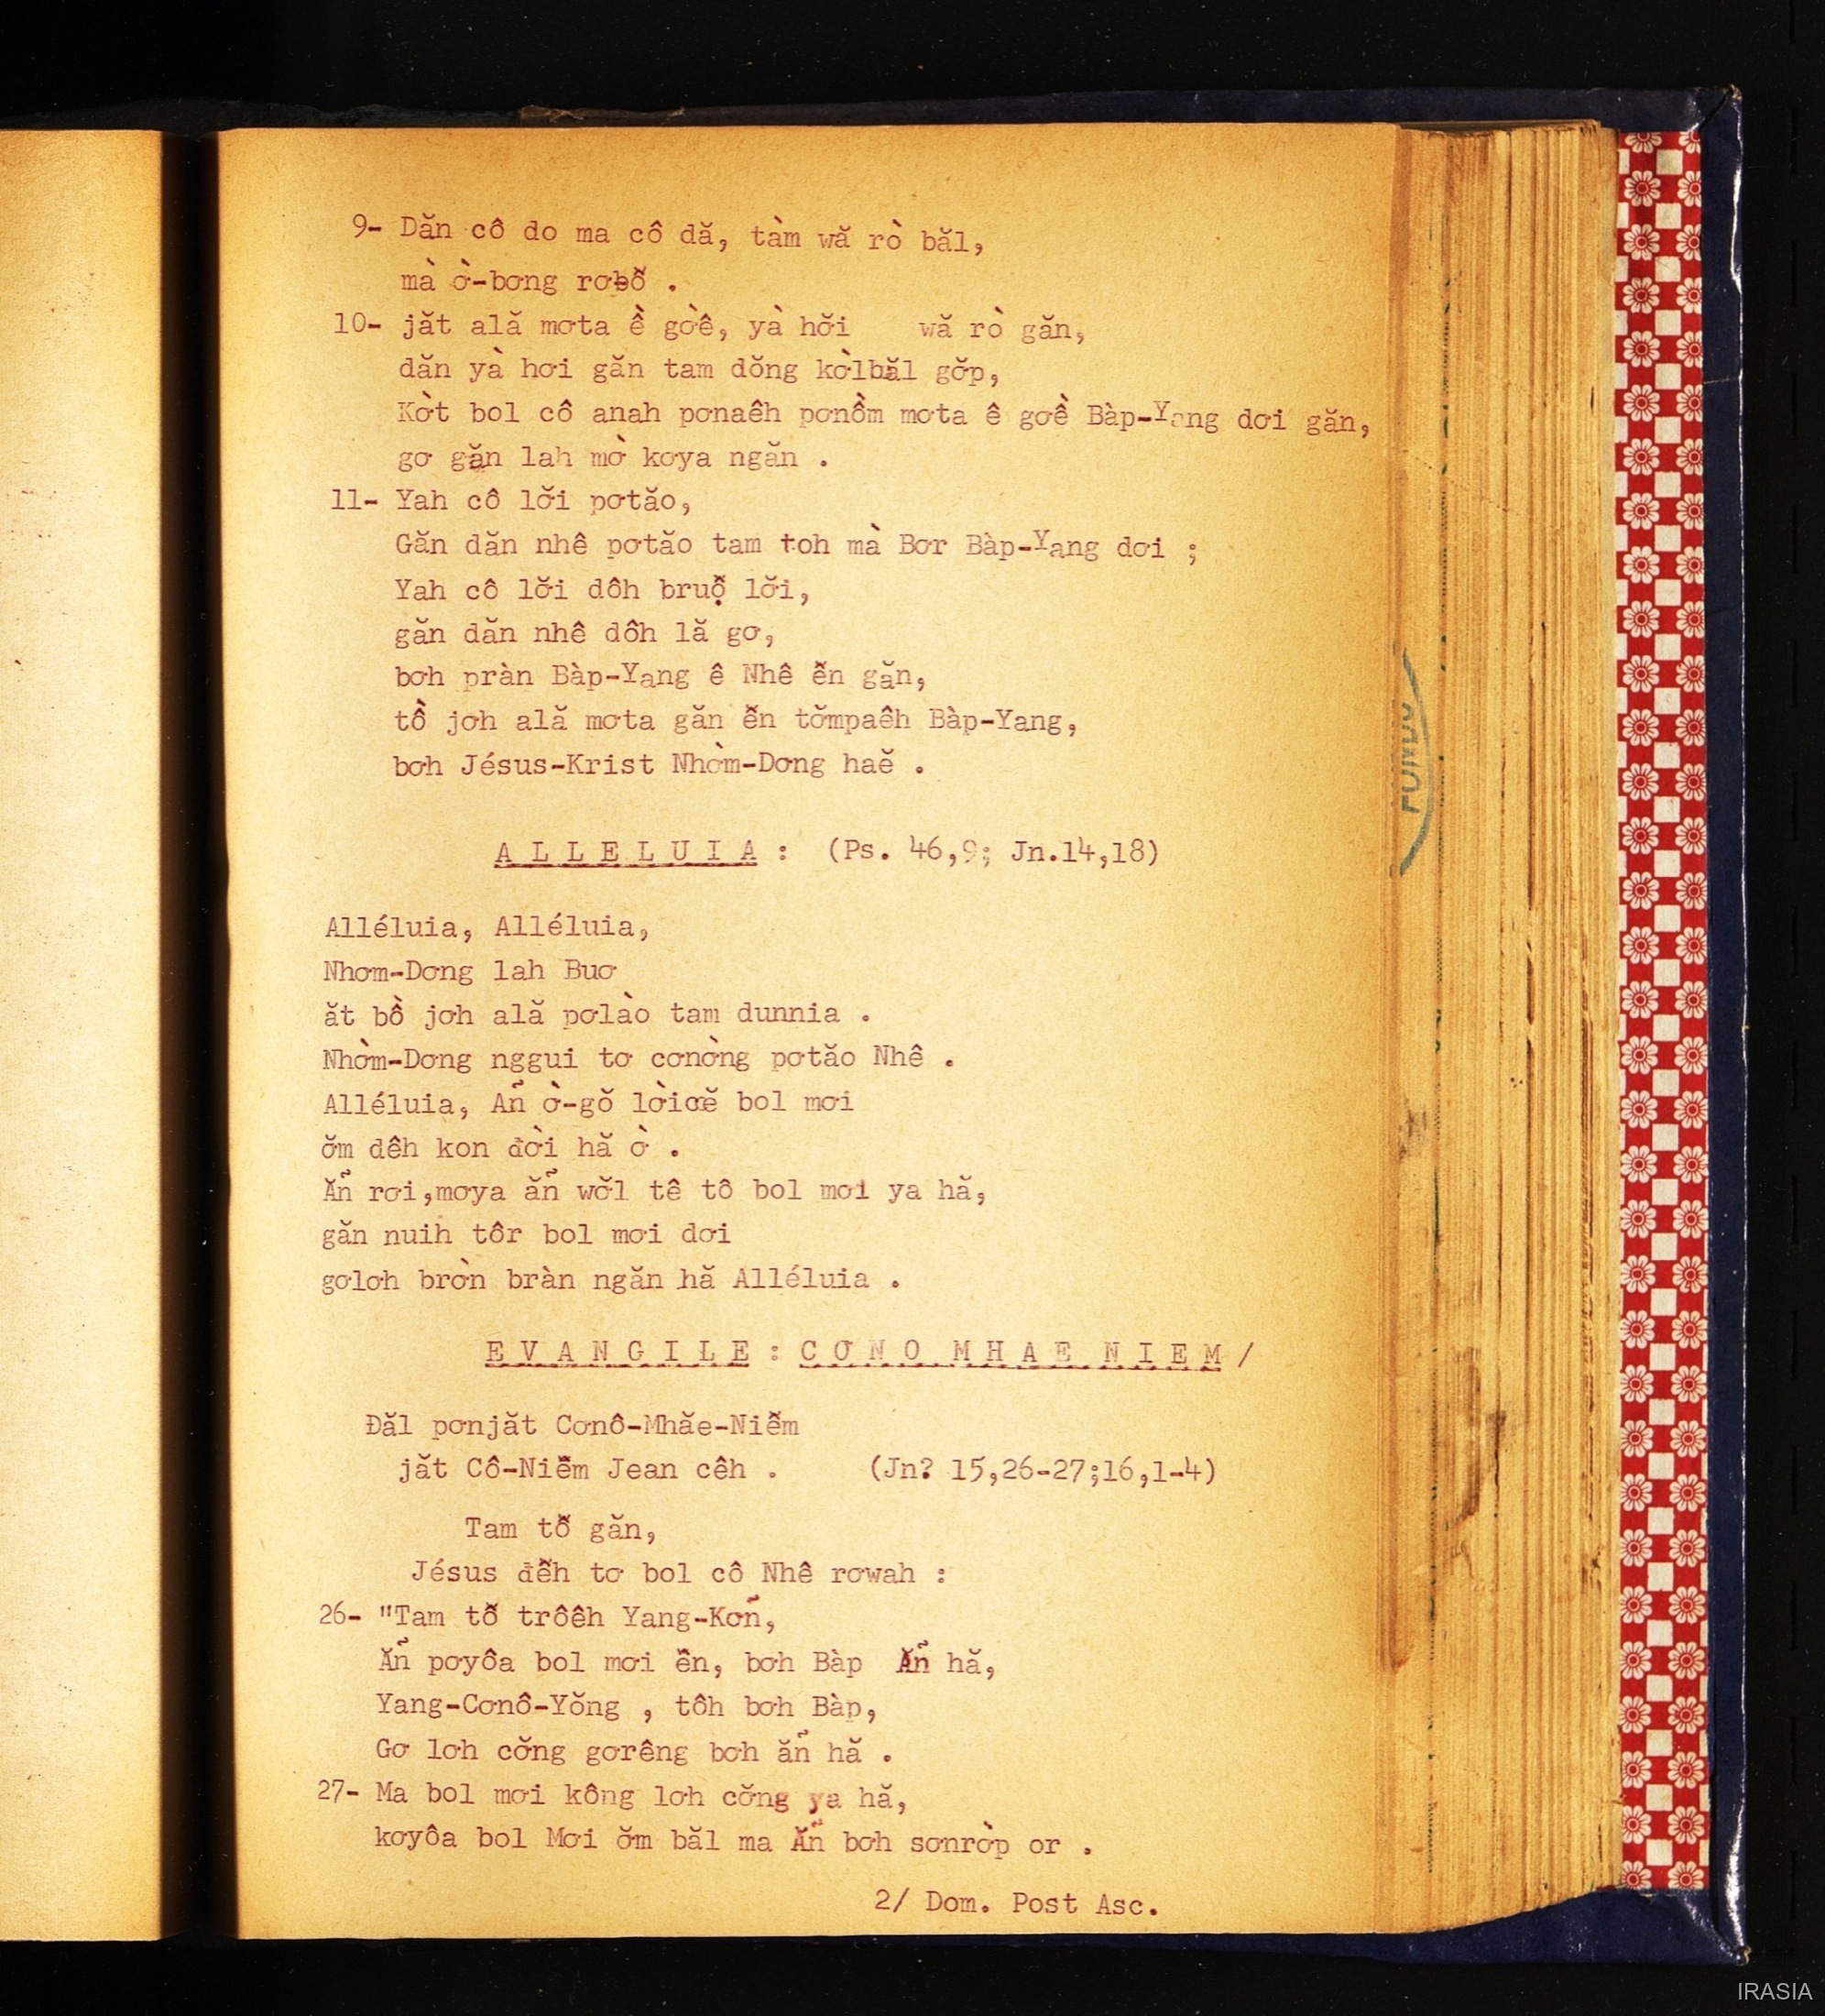 9- Dăn cô do ma cô dă, tàm wă rò băl,
mà ờ-bơng rơbỗ .
10- jăt ală mơta ề gờê, yà hơ̆i wă rò găn,
dăn yà hơi găn tam dŏng kờlbăl gơ̆p,
Kờt bol cô anah pơnaêh pơnồm mơta ê gơề Bàp-Yang dơi găn,
gơ găn lah mờ kơya ngăn .
11- Yah cô lơ̆i pơtăo,
Găn dăn nhê pơtăo tam toh mà Bơr Bàp-Yang dơi ;
Yah cô lơ̆i dôh bruộ̆ lơ̆i,
găn dăn nhê dôh lă gơ,
bơh pràn Bàp-Yang ê Nhê ễn găn,
tồ jơh ală mơta găn ễn tơ̆mpaêh Bàp-Yang,
bơh Jésus-Krist Nhờm-Dơng haĕ .
A L L E L U I A : (Ps. 46,9; Jn.14,18)
Alléluia, Alléluia,
Nhơm-Dơng lah Buơ
ăt bồ jơh ală pơlào tam dunnia .
Nhờm-Dơng nggui tơ cơnờng pơtăo Nhê .
Alléluia, Añ ờ-gŏ lờiœĕ bol mơi
ơ̆m dêh kon đời hă ờ .
Ăñ rơi,mơya ăñ wơ̆l tê tô bol mơi ya hă,
găn nuih tôr bol mơi dơi
gơlơh brờn bràn ngăn hă Alléluia .
E V A N G I L E : C Ơ N O M H A E N I E M /
Đăl pơnjăt Cơnô-Mhăe-Niễm
jăt Cô-Niễm Jean cêh . (Jn? 15,26-27;16,1-4)
Tam tỗ găn,
Jésus đễh tơ bol cô Nhê rơwah :
26- "Tam tỗ trôêh Yang-Kơñ,
Ăñ pơyôa bol mơi ễn, bơh Bàp Ăñ hă,
Yang-Cơnô-Yŏng , tôh bơh Bàp,
Gơ lơh cơ̆ng gơrêng bơh ăñ hă .
27- Ma bol mơi kông lơh cơ̆ng ya hă,
kơyôa bol Mơi ơ̆m băl ma Ăñ bơh sơnrờp or .
2/ Dom. Post Asc.
IRASIA